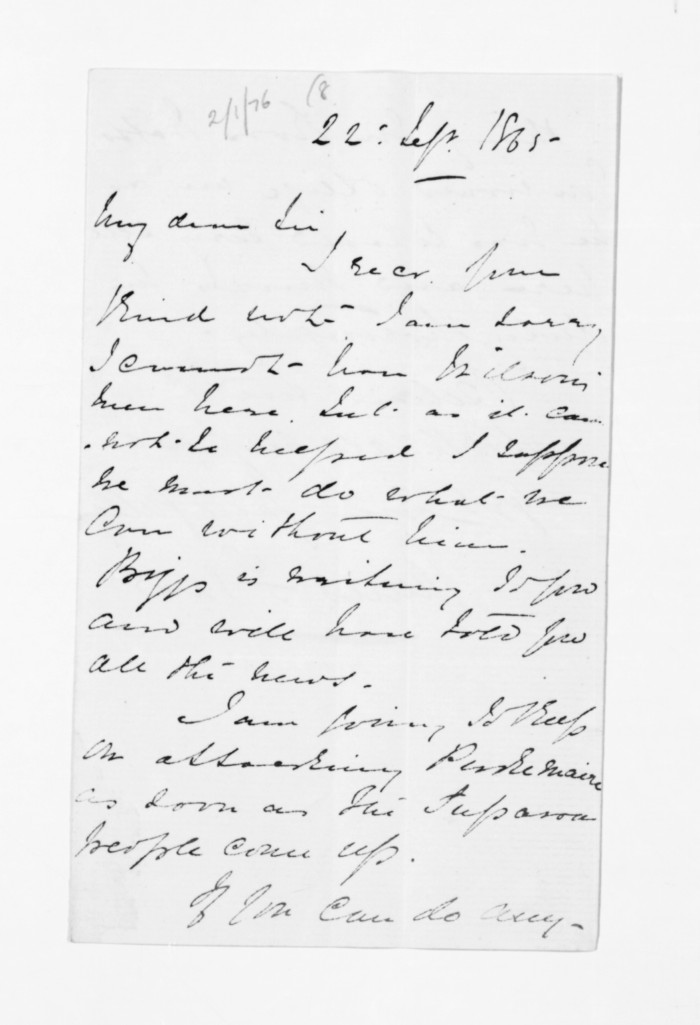 2/1/76 (8
22: Sept. 1865-
My dear Sir
I recd. your
kind note I am sorry
I cannot have Wilson's
men here but as it can
not be helped I suppose
we must do what we
can without him.
Biggs is writing to you
and will have told you
all the news.
I am going to keep
on attacking
as soon as the Tuparoa
people come up.
If you can do any-